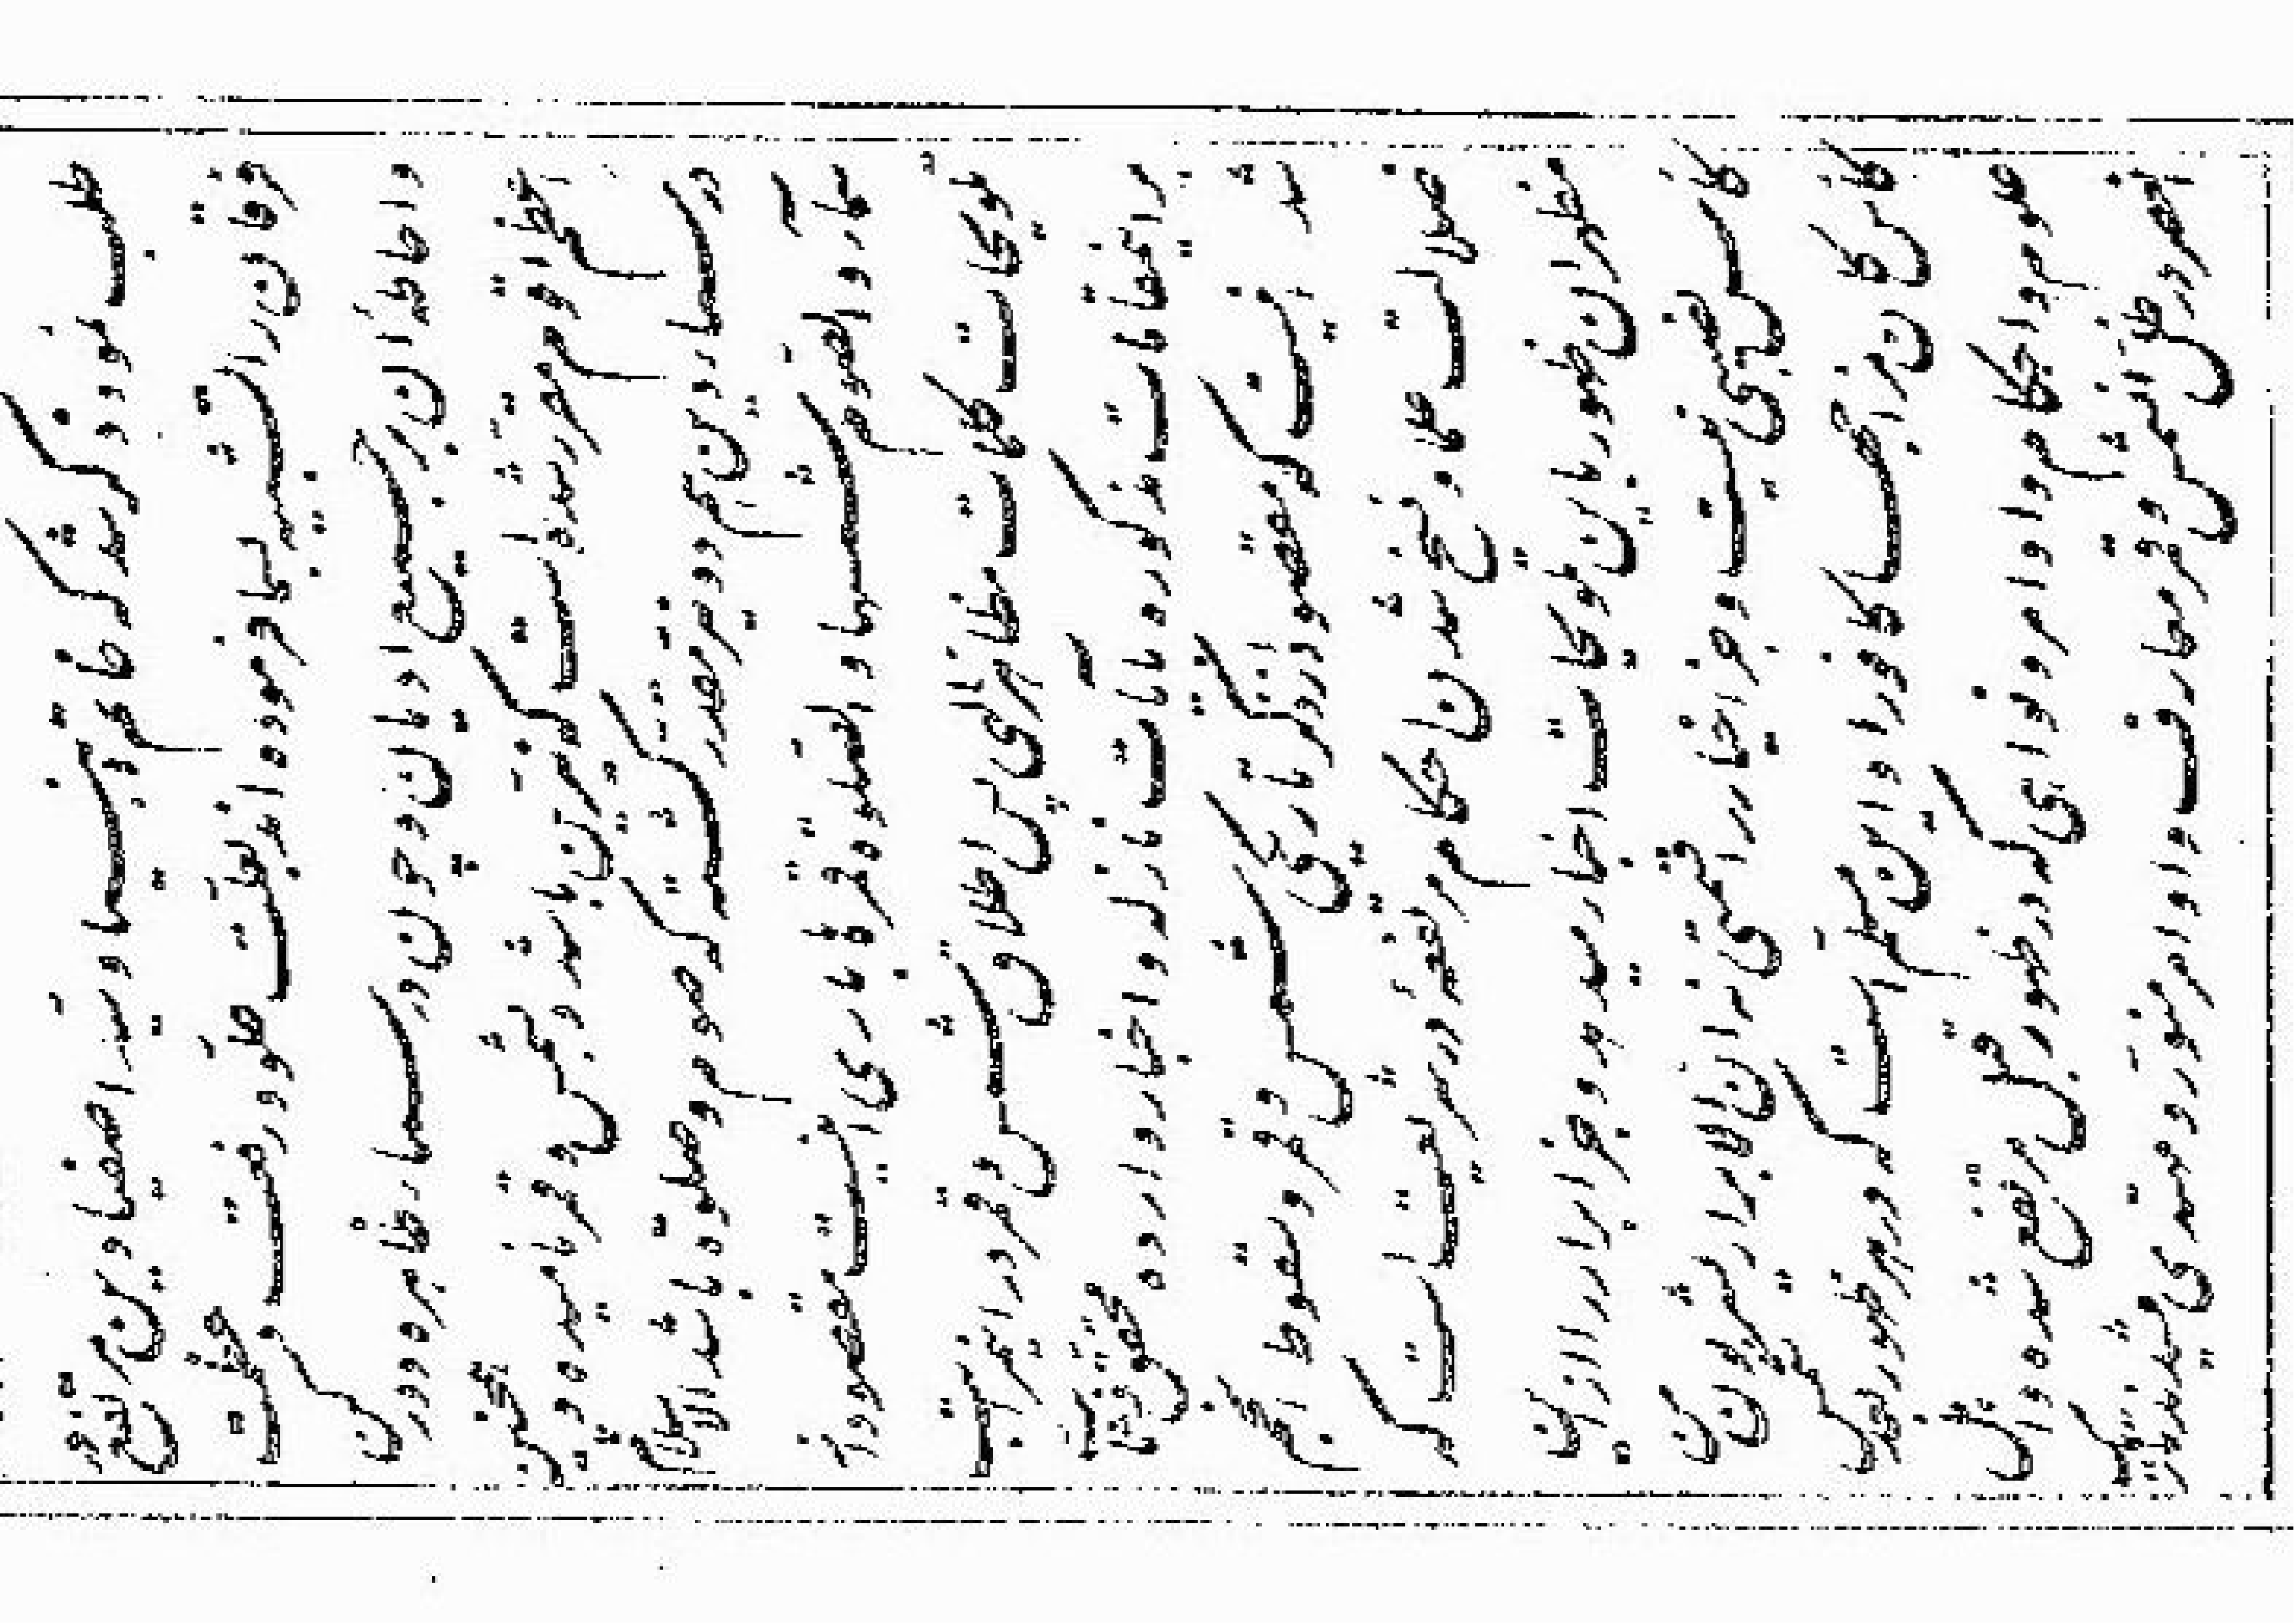 طلب نمود ذکر شد که خاتم انبیا و سید اصفیا دین مرتفع در
فرقان را تشبیه بسما فرموده اند بعلت علو و رفعت و عظمت
و احاطه آن بر جمیع ادیان و چون در سماء ظاهره دو رکن
اعظم اقوم مقرر شده است که نیرین باشد و بشمس و قمر نامیده و همچنین
در سماء دین هم دو نیر مقدر گشته که صوم و صلوة باشد الاسلام
سماء و الصوم شمسها و الصلوة قمرها باری اینست مقصود از
تلویحات کلمات مظاهر الهی پس اطلاق شمس و قمر در این مراتب
بر این مقامات مذکوره بآیات نازله و اخبار وارده محقق و ثابت
شد اینست که مقصود از ذکر تاریکی شمس و قمر و سقوط انجم
ضلالت علما و نسخ شدن احکام مرتفعه در شریعت است که
مظهر آن ظهور باین تلویحات اخبار میدهد و جز ابرار را از این
کأس نصیبی نیست و جز اخیار را قسمتی نه ان الابرار یشربون من
کأس کان مزاجها کافورا و این مسلم است که در هر ظهور بعد شمس
علوم و احکام و اوامر و نواهی که در ظهور قبل مرتفع شده و اهل
آن عصر در ظل آن شمس و قمر معارف و اوامر منور و مهتدی میشدند تاریک